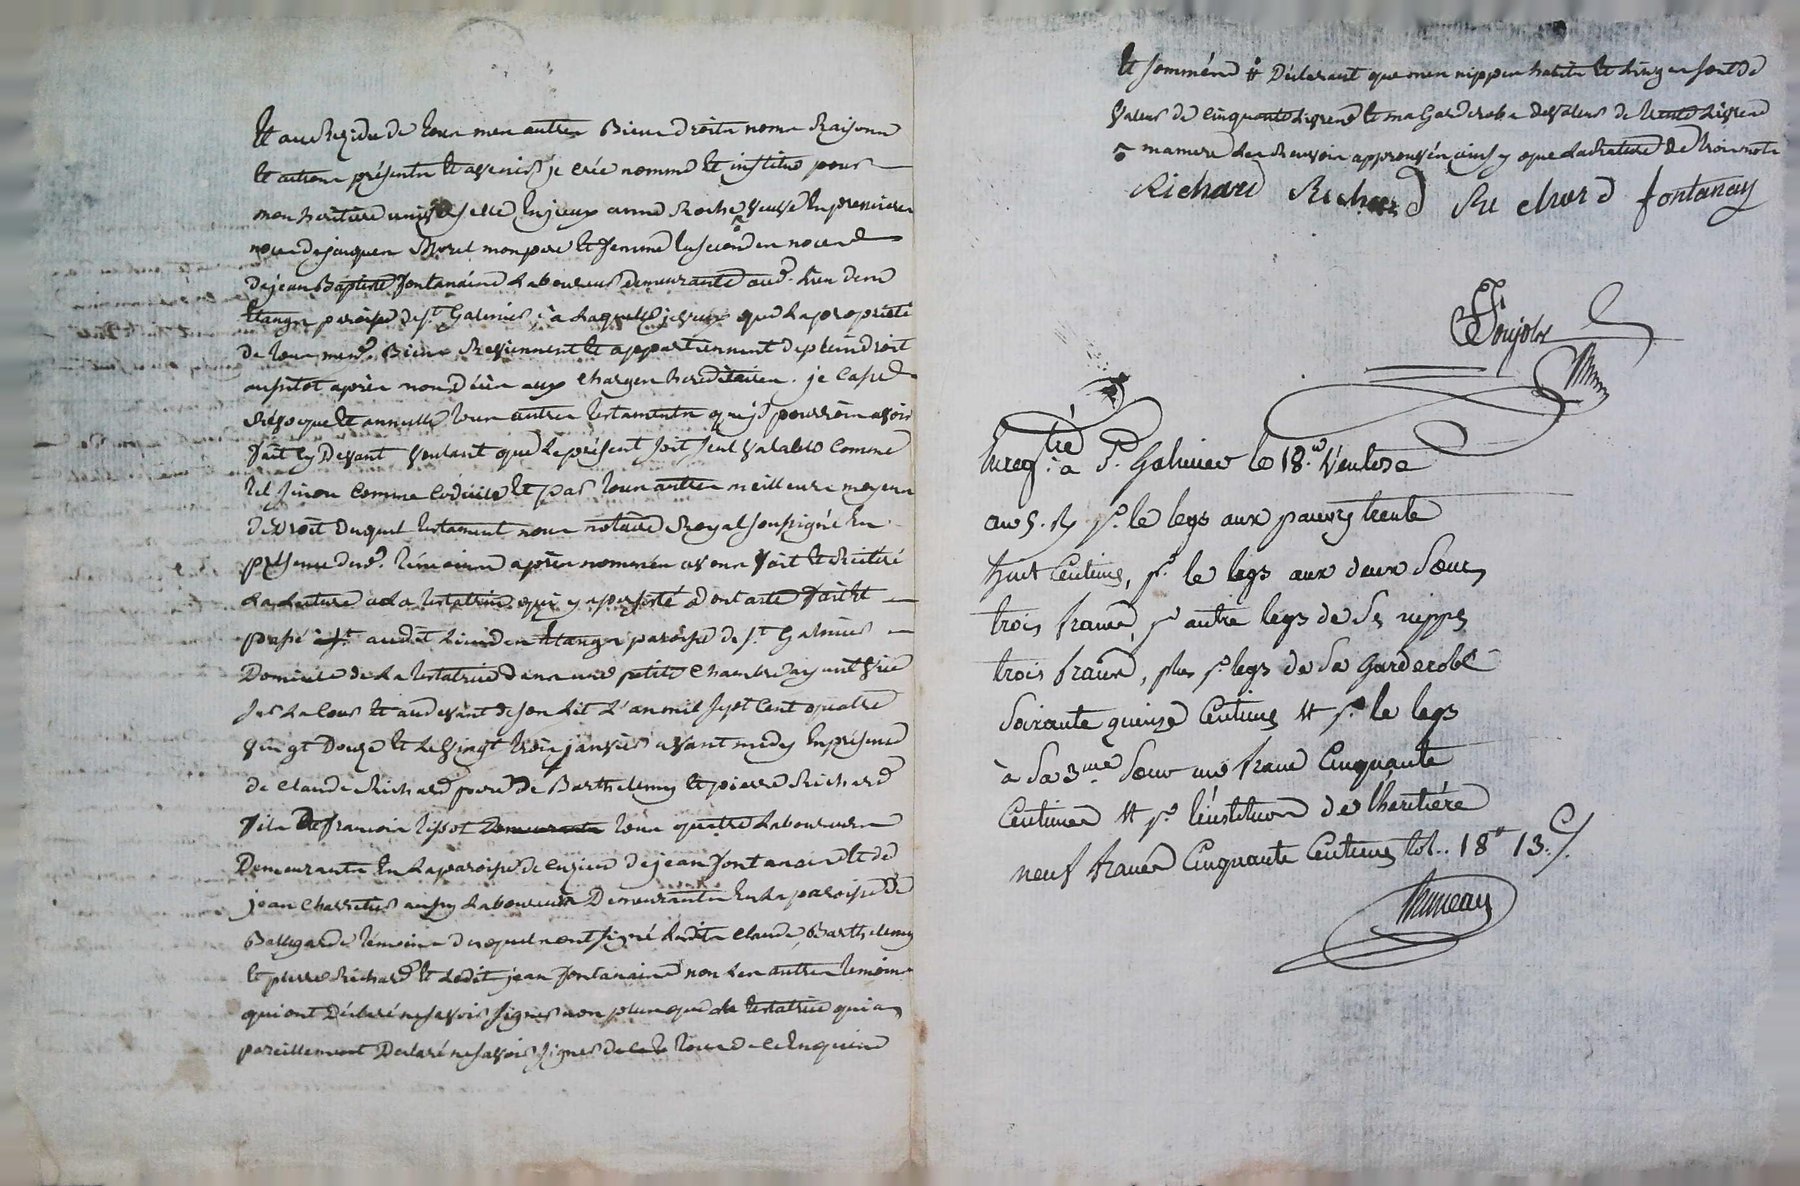 Et au Rezidu de tous mes autres Biens droits noms Raisons
et actions présents et avenir je crée nomme et institue pour
mon héritière universelle Anne Roche veuve en premieres
noces de jacques Morel mon pere et femme en secondes noces
de jean Baptiste fontanaine Laboureur demeurante aud. lieu des
Etangs paroisse de St Galmier, à Laquelle je veux que La proprieté
de tous mesd. Biens Reviennent et appartiennent de plein droit
ausitot après mon Décès aux charges héréditaires. je Casse
Révoque et annulle tous autres testaments que je pourrois avoir
fait cy Devant voulant que Le présent soit seul valable Comme
tel sinon Comme Codicile et par tous autres meilleurs moyens
de Droit Duquel testament nous notaire Royal soussigné En
présence desd. témoins après nommés avons fait et Réitéré
La Lecture a La testatrice qui y a persisté Dont acte fait et
passé audit Lieu des Etangs paroisse de St Galmier
Domicile de La testatrice dans une petite Chambre ayant vue
sur La Cour et au devant de son Lit L'an mil sept Cent quatre
vingt Douze et Le vingt trois janvier avant midy En présence
de Claude Richard pere de Barthelemy et pierre Richard
fils De francois tissot demeurants tous quatre Laboureurs
Demeurants En La paroisse de Cuzieu de jean fontanaine et de
jean Charretier aussy Laboureurs Demeurants En La paroisse de
Bellegarde témoins desquels n'ont signé Lesdits Claude, Barthelemy
et pierre Richard et Ledit jean fontanaine non Les autres temoins
qui ont Déclaré ne savoir signer non plus que La testatrice qui a
pareillement Déclaré ne savoir signer de ce tous de ce Enquis
Et sommés # Déclarant que mes nippes habits et Linges sont de
valeur de Cinquante Livres et ma Garderobe de valeur de trente Livres
o ma mere Les Renvois approuvés ainsy que La Rature de trois mots
Richard Richard Richard fontanay
Enregtré à St. Galmier le 18. Ventose
an 5. Rx pr. le legs aux pauvres trente
huit Centimes, pr. le legs aux deux Sœurs
trois francs, pr autre legs de Ses nippes
trois francs, plus pr. legs de Sa Garderobe
Soixante quinze Centimes et pr. le legs
à Sa 3me Sœur un franc Cinquante
Centimes et pr. l'institution de l'héritière
neuf francs Cinquante Centimes tot.. 18# 13.c/.